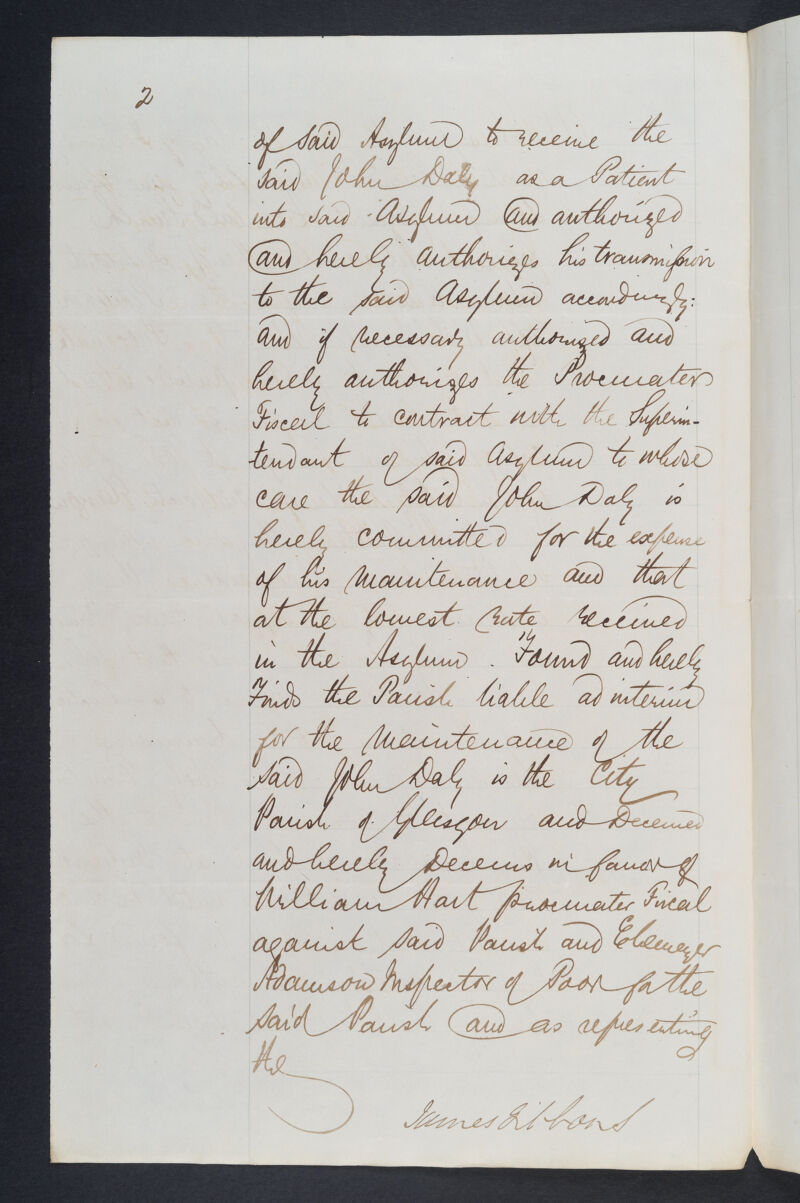 2
of said Asylum to receive the
said John Daly as a Patient
into said Asylum and authorized
and hereby authorizes his transmission
to the said Asylum accordingly:
and if necessary authorized and
hereby authorizes the Procurator
Fiscal to contract with the Superin-
tendant of said Asylum to whose
care the said John Daly is
hereby committed for the expense
of his maintenance and that
at the lowest rate received
in the Asylum. Found and hereby
Finds the Parish liable ad interim
for the maintenance of the
said John Daly is the City
Parish of Glasgow and Decerned
and hereby Decerns in favor of
William Hart procurator Fiscal
against said Parish and Ebenezer
Adamson Inspector of Poor for the
said Parish and as representing
the
James Gibbons